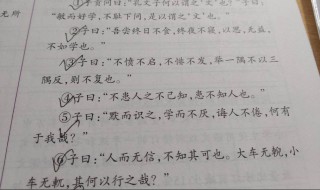 ①子贡问曰：“孔文子何以谓之‘文’也？”子曰：
无所
“敏而好学，不耻下问，是以谓之‘文’也。”
②子曰：“吾尝终日不食，终夜不寝，以思，无益，
不如学也。”
③子曰：“不愤不启，不悱不发，举一隅不以三
隅反，则不复也。”
④子曰：“不患人之不己知，患不知人也。”
⑤子曰：“默而识之，学而不厌，诲人不倦，何有
于我哉？”
⑥子曰：“人而无信，不知其可也。大车无輗，小
车无軏，其何以行之哉？”